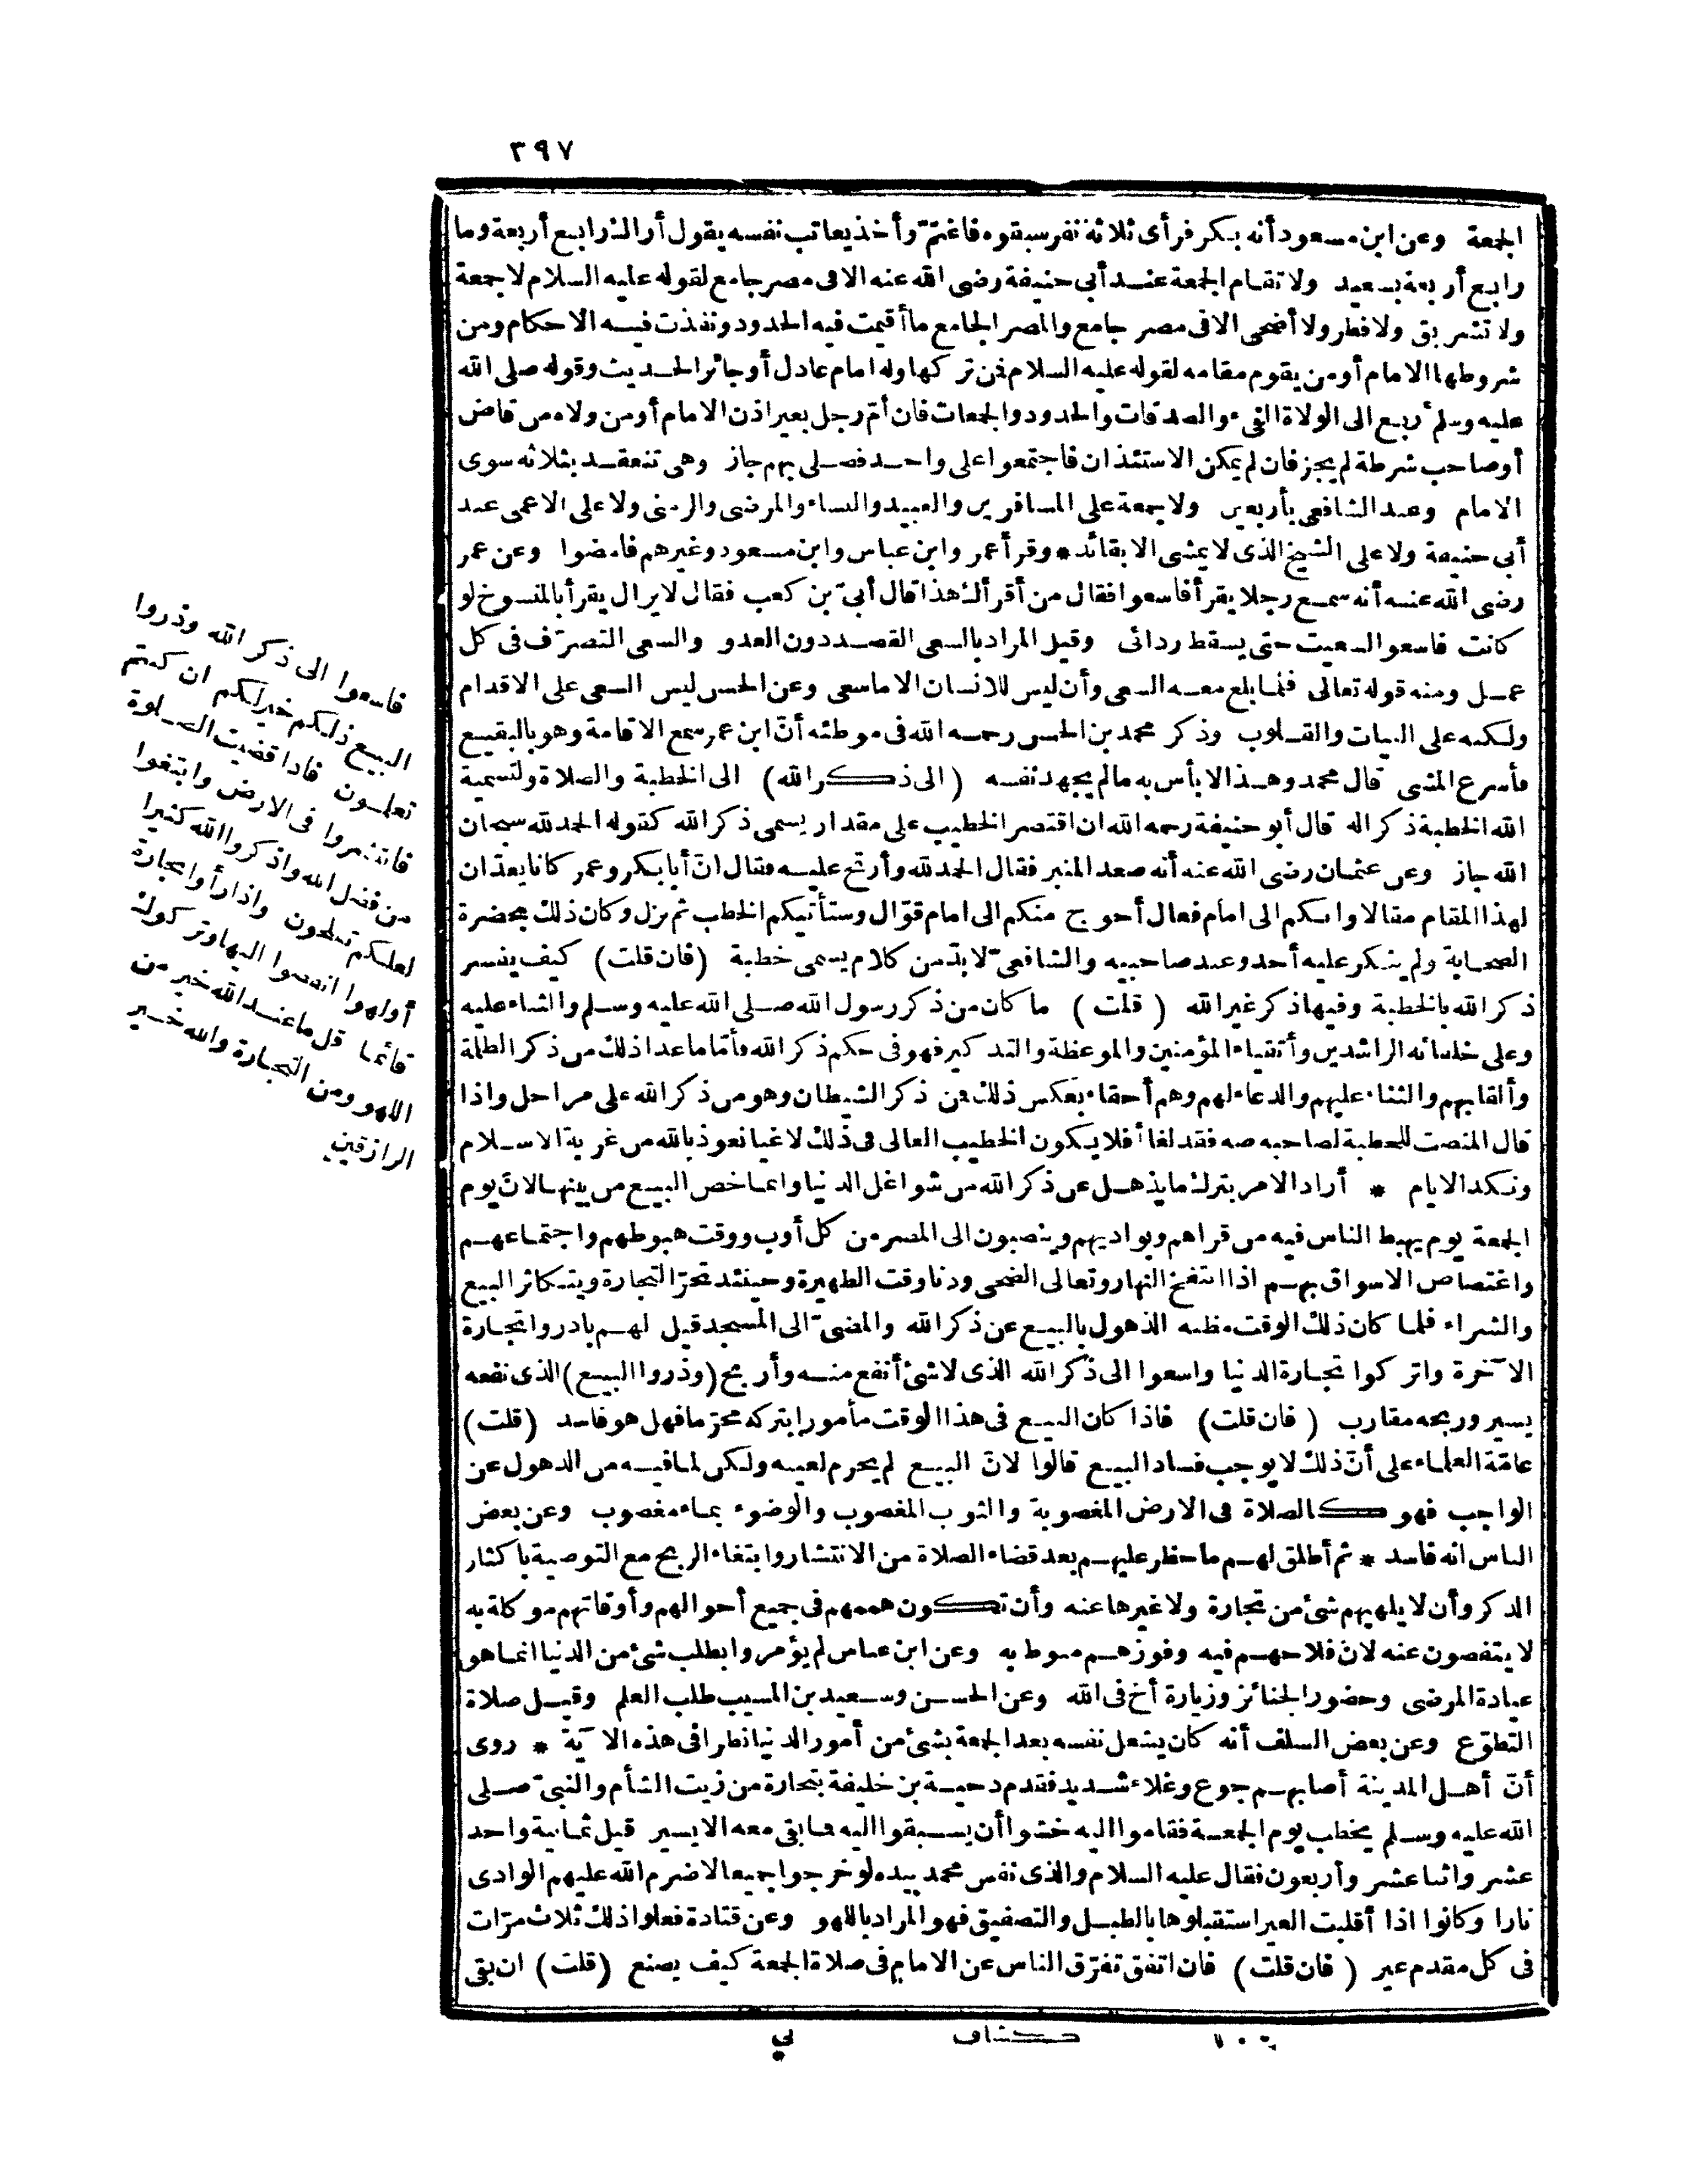 ٣٩٧
الجمعة وعن ابن مسعود أنه بكر فرأى ثلاثة نفر سبقوه فاغتمّ وأخذ يعاتب نفسه يقول أراك رابع أربعة وما
رابع أربعة بسعيد ولا تقام الجمعة عند أبي حنيفة رضى الله عنه الا فى مصر جامع لقوله عليه السلام لا جمعة
ولا تشريق ولا فطر ولا أضحى الا فى مصر جامع والمصر الجامع ما أقيمت فيه الحدود ونفذت فيه الاحكام ومن
شروطها الامام أو من يقوم مقامه لقوله عليه السلام فمن تركها وله امام عادل أو جائر الحديث وقوله صلى الله
عليه وسلم أربع الى الولاة الفىء والصدقات والحدود والجمعات فان أمّ رجل بغير اذن الامام أو من ولاه من قاض
أو صاحب شرطة لم يجز فان لم يمكن الاستئذان فاجتمعوا على واحد فصلى بهم جاز وهى تنعقد بثلاثه سوى
الامام وعند الشافعى بأربعين ولا جمعة على المسافرين والعبيد والنساء والمرضى والزمنى ولا على الاعمى عند
أبى حنيفة ولا على الشيخ الذى لا يمشى الا بقائد * وقرأ عمر وابن عباس وابن مسعود وغيرهم فامضوا وعن عمر
رضى الله عنه أنه سمع رجلا يقرأ فاسعوا فقال من أقرأك هذا قال أبىّ بن كعب فقال لا يزال يقرأ بالمنسوخ لو
كانت فاسعوا لسعيت حتى يسقط ردائى وقيل المراد بالسعى القصد دون العدو والسعى التصرّف فى كل
عمل ومنه قوله تعالى فلما بلغ معه السعى وأن ليس للانسان الا ما سعى وعن الحسن ليس السعى على الاقدام
ولكنه على النيات والقلوب وذكر محمد بن الحسن رحمه الله فى موطئه أنّ ابن عمر سمع الاقامة وهو بالبقيع
فأسرع المشى قال محمد وهذا لا بأس به ما لم يجهد نفسه (الى ذكر الله) الى الخطبة والصلاة ولتسمية
الله الخطبة ذكرا له قال أبو حنيفة رحمه الله ان اقتصر الخطيب على مقدار يسمى ذكر الله كقوله الحمد لله سبحان
الله جاز وعن عثمان رضى الله عنه أنه صعد المنبر فقال الحمد لله وأرتج عليه فقال انّ أبا بكر وعمر كانا يعدّان
لهذا المقام مقالا وانكم الى امام فعال أحوج منكم الى امام قوّال وستأتيكم الخطب ثم نزل وكان ذلك بحضرة
الصحابة ولم ينكر عليه أحد وعند صاحبيه والشافعىّ لا بدّ من كلام يسمى خطبة (فان قلت) كيف يفسر
ذكر الله بالخطبة وفيها ذكر غير الله (قلت) ما كان من ذكر رسول الله صلى الله عليه وسلم والثناء عليه
وعلى خلفائه الراشدين وأتقياء المؤمنين والموعظة والتذكير فهو فى حكم ذكر الله فأمّا ما عدا ذلك من ذكر الظلمة
وألقابهم والثناء عليهم والدعاء لهم وهم أحقاء بعكس ذلك فمن ذكر الشيطان وهو من ذكر الله على مراحل واذا
قال المنصت للخطبة لصاحبه صه فقد لغا أفلا يكون الخطيب الغالى فى ذلك لاغيا نعوذ بالله من غربة الاسلام
ونكد الايام * أراد الامر بترك ما يذهل عن ذكر الله من شواغل الدنيا وانما خص البيع من بينها لانّ يوم
الجمعة يوم يهبط الناس فيه من قراهم وبواديهم وينصبون الى المصر من كل أوب ووقت هبوطهم واجتماعهم
واغتصاص الاسواق بهم اذا انتفخ النهار وتعالى الضحى ودنا وقت الظهيرة وحينئذ تحرّ التجارة ويتكاثر البيع
والشراء فلما كان ذلك الوقت مظنه الذهول بالبيع عن ذكر الله والمضىّ الى المسجد قيل لهم بادروا تجارة
الآخرة واتركوا تجارة الدنيا واسعوا الى ذكر الله الذى لا شئ أنفع منه وأربح (وذروا البيع) الذى نفعه
يسير وربحه مقارب (فان قلت) فاذا كان البيع فى هذا الوقت مأمورا بتركه محرّما فهل هو فاسد (قلت)
عامّة العلماء على أنّ ذلك لا يوجب فساد البيع قالوا لانّ البيع لم يحرم لعينه ولكن لما فيه من الذهول عن
الواجب فهو كالصلاة فى الارض المغصوبة والثوب المغصوب والوضوء بماء مغصوب وعن بعض
الناس انه فاسد * ثم أطلق لهم ما حظر عليهم بعد قضاء الصلاة من الانتشار وابتغاء الربح مع التوصية باكثار
الذكر وأن لا يلهيهم شئ من تجارة ولا غيرها عنه وأن تكون هممهم فى جميع أحوالهم وأوقاتهم موكلة به
لا يتفصون عنه لانّ فلاحهم فيه وفوزهم منوط به وعن ابن عباس لم يؤمروا بطلب شئ من الدنيا انما هو
عيادة المرضى وحضور الجنائز وزيارة أخ فى الله وعن الحسن وسعيد بن المسيب طلب العلم وقيل صلاة
التطوّع وعن بعض السلف أنه كان يشغل نفسه بعد الجمعة بشئ من أمور الدنيا نظرا فى هذه الآية * روى
أنّ أهل المدينة أصابهم جوع وغلاء شديد فقدم دحية بن خليفة بتجارة من زيت الشأم والنبىّ صلى
الله عليه وسلم يخطب يوم الجمعة فقاموا اليه خشوا أن يسبقوا اليه فما بقى معه الا يسير قيل ثمانية واحد
عشر واثنا عشر وأربعون فقال عليه السلام والذى نفس محمد بيده لو خرجوا جميعا لاضرم الله عليهم الوادى
نارا وكانوا اذا أقبلت العير استقبلوها بالطبل والتصفيق فهو المراد باللهو وعن قتادة فعلوا ذلك ثلاث مرّات
فى كل مقدم عير (فان قلت) فان اتفق تفرّق الناس عن الامام فى صلاة الجمعة كيف يصنع (قلت) ان بقى
فاسعوا الى ذكر الله وذروا
البيع ذلكم خير لكم ان كنتم
تعلمون فاذا قضيت الصلوة
فانتشروا فى الارض وابتغوا
من فضل الله واذكروا الله كثيرا
لعلكم تفلحون واذا رأوا تجارة
أو لهوا انفضوا اليها وتركوك
قائما قل ما عند الله خير من
اللهو ومن التجارة والله خير
الرازقين
كشاف
نى